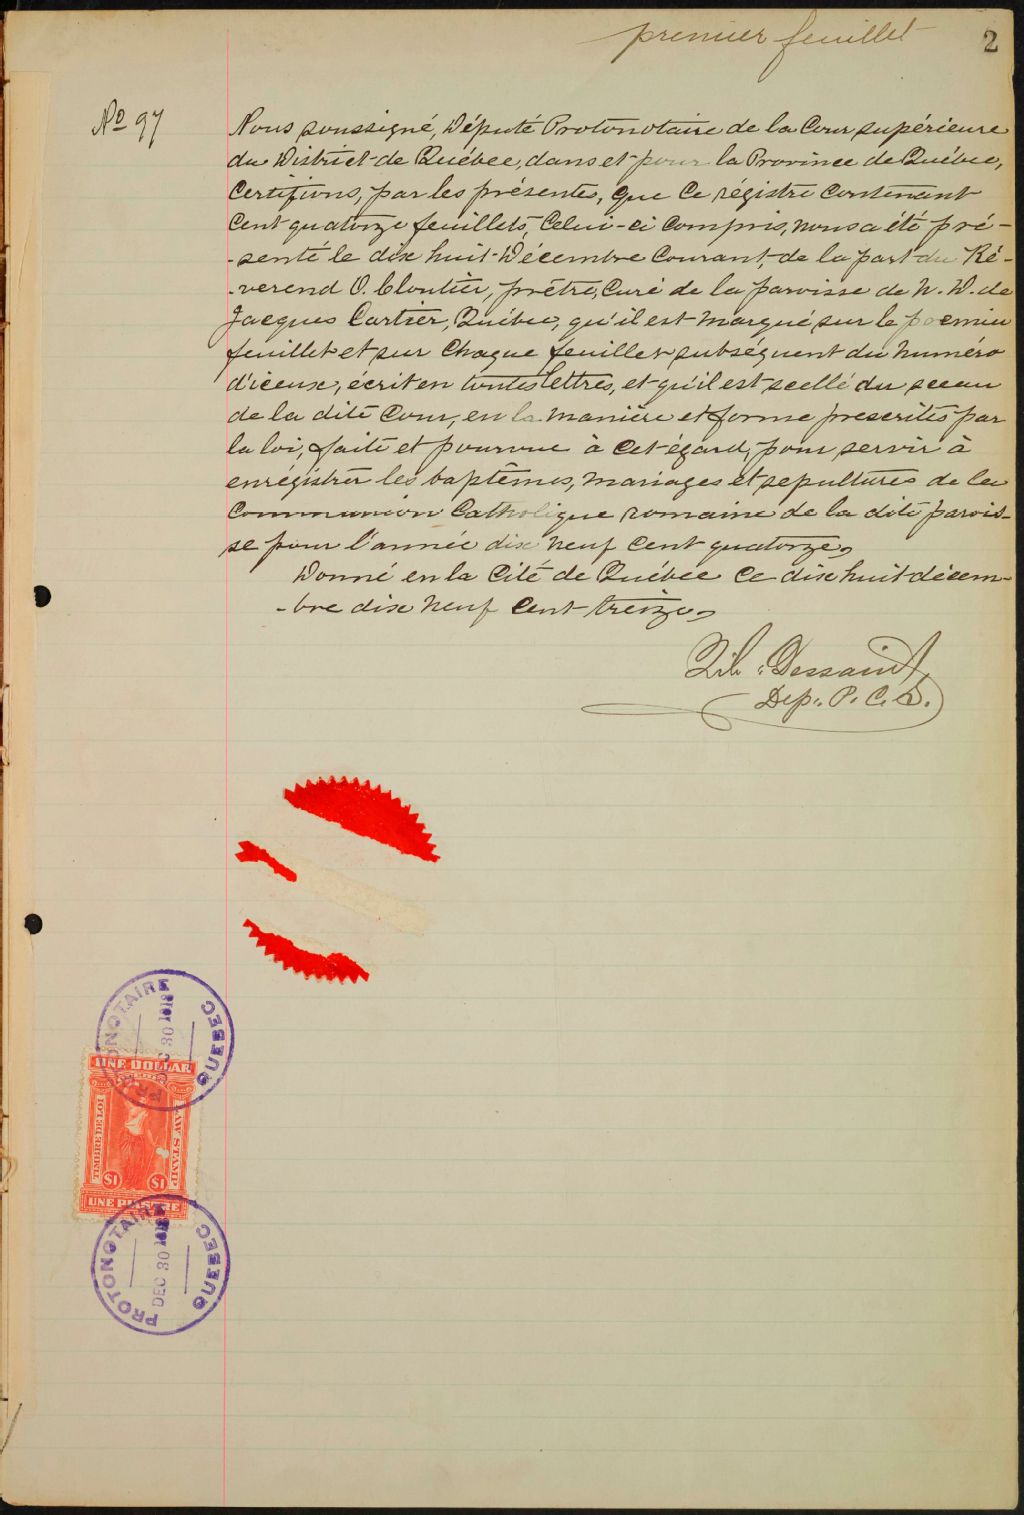 premier feuillet
2
No 97
Nous soussigné, Député Protonotaire de la Cour supérieure
du District de Québec, dans et pour la Province de Québec,
Certifions, par les présentes, que ce régistre contenant
cent quatorze feuillets, celui-ci compris, nous a été pré-
-senté le dix huit Décembre courant, de la part du Ré-
-verend O. Cloutier, prêtre, curé de la paroisse de N. D. de
Jacques Cartier, Québec, qu'il est marqué sur le premier
feuillet et sur chaque feuillet subséquent du numéro
d'iceux, écrit en toutes lettres, et qu'il est scellé du sceau
de la dite Cour, en la manière et forme prescrites par
la loi, faite et pourvue à cet égard, pour servir à
enrégistrer les baptêmes, mariages et sepultures de la
Communion Catholique romaine de la dite parois-
se pour l'année dix neuf cent quatorze,
Donné en la Cité de Québec ce dix huit décem-
-bre dix neuf cent treize,
Dessaint
Dep. P. C. S.
PROTONOTAIRE
QUEBEC
DEC 30 1913
UNE DOLLAR
TIMBRE DE LOI
LAW STAMP
$1 $1
UNE PIASTRE
PROTONOTAIRE
QUEBEC
DEC 30 1913